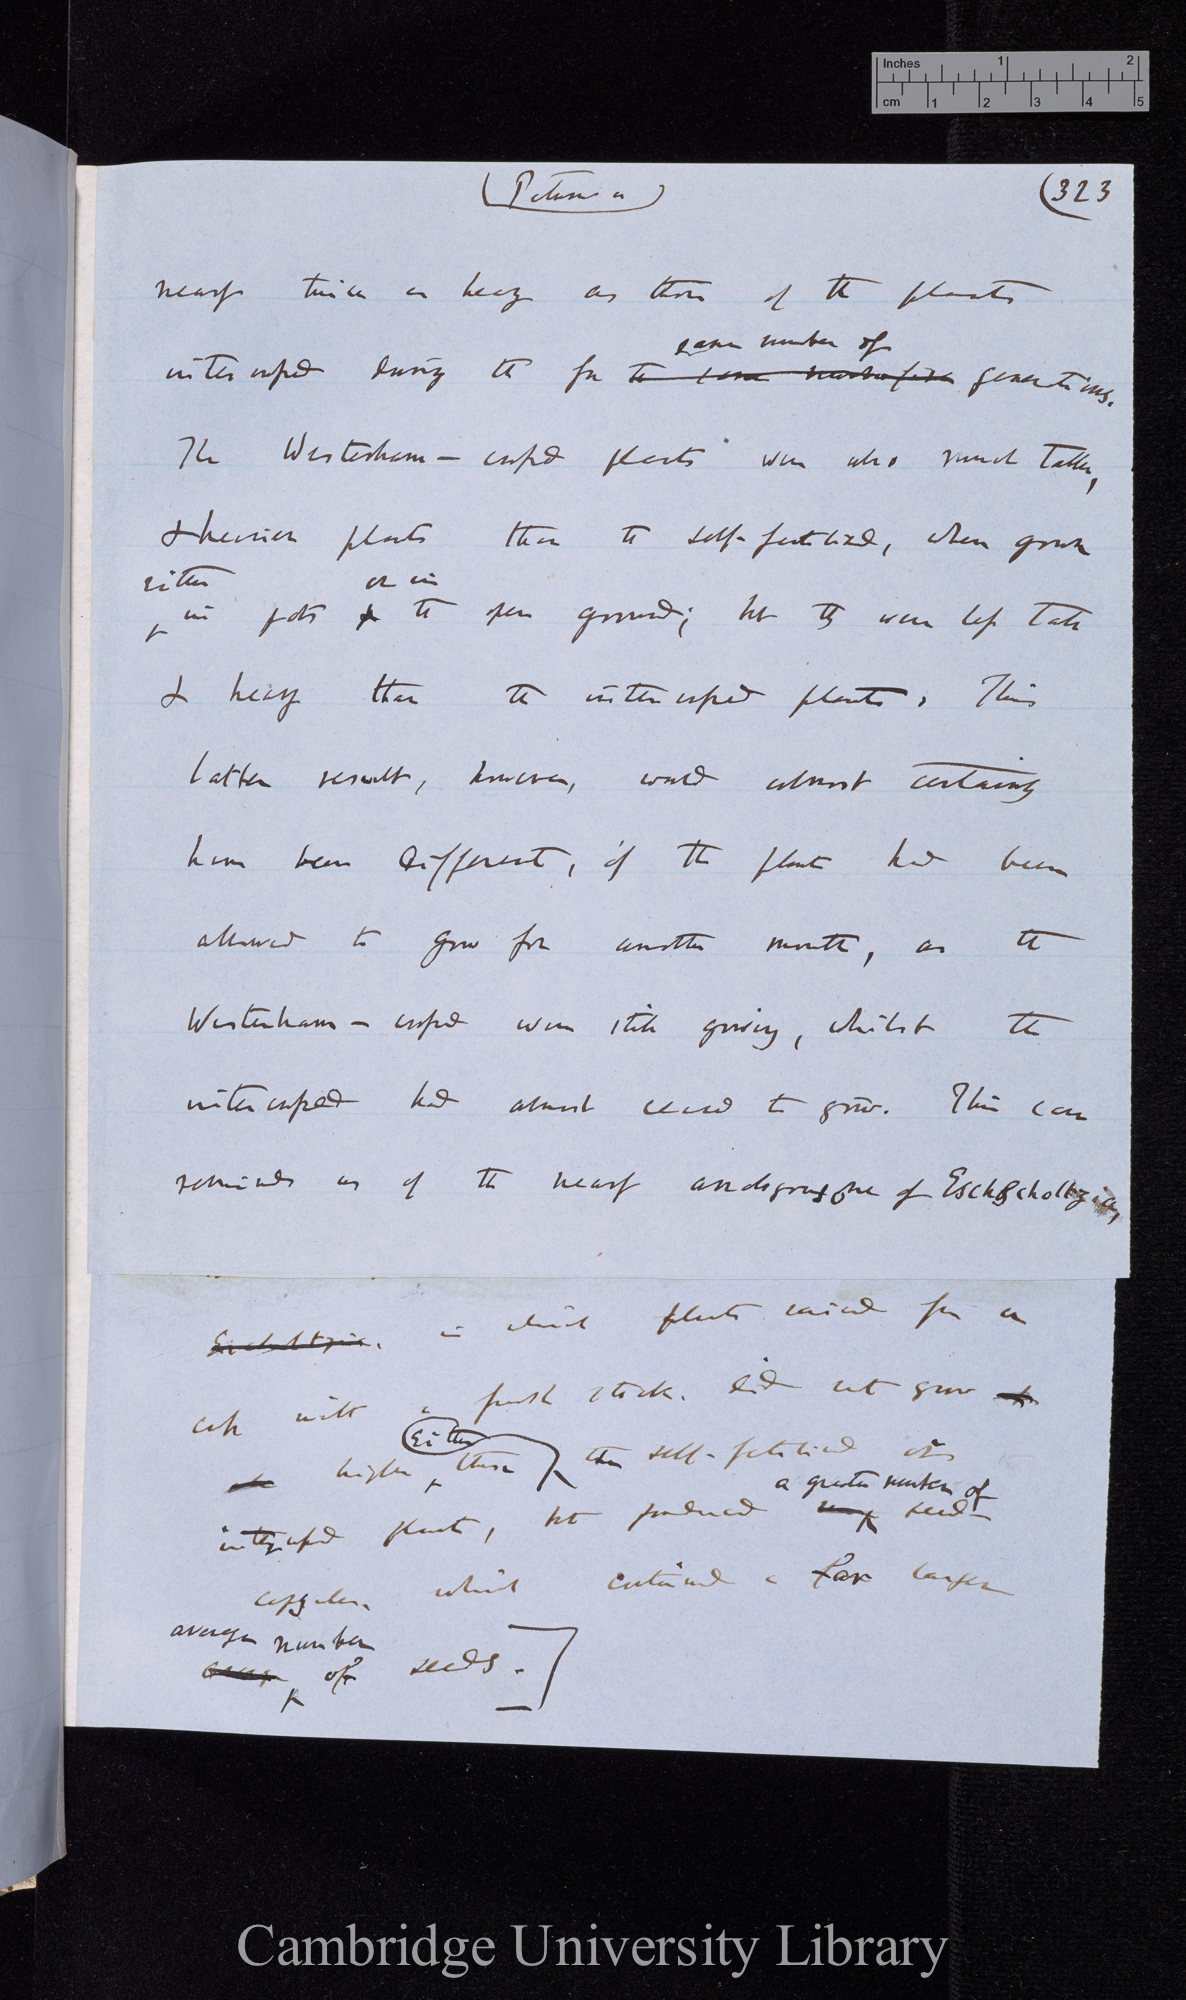 Inches 1 2
cm 1 2 3 4 5
(Petunia) (323
nearly twice as heavy as those of the plants
same number of
intercrossed during the for the same number of generations.
The Westerham-crossed plants were also much taller,
& heavier plants than the self-fertilised, when grown
either or in
in pots the open ground; but they were less tall
& heavy than the intercrossed plants. This
latter result, however, would almost certainly
have been different, if the plants had been
allowed to grow for another month, as the
Westerham-crossed were still growing, whilst the
intercrossed had almost ceased to grow. This case
reminds us of the nearly analogous one of Eschscholtzia,
Eschscholtzia. in which plants raised from a
cross with a fresh stock. did not grow
either
higher than the self-fertilised or
a greater number of
intercrossed plants, but produced seed-
capsules. which contained a far larger
average number
of seeds.
Cambridge University Library